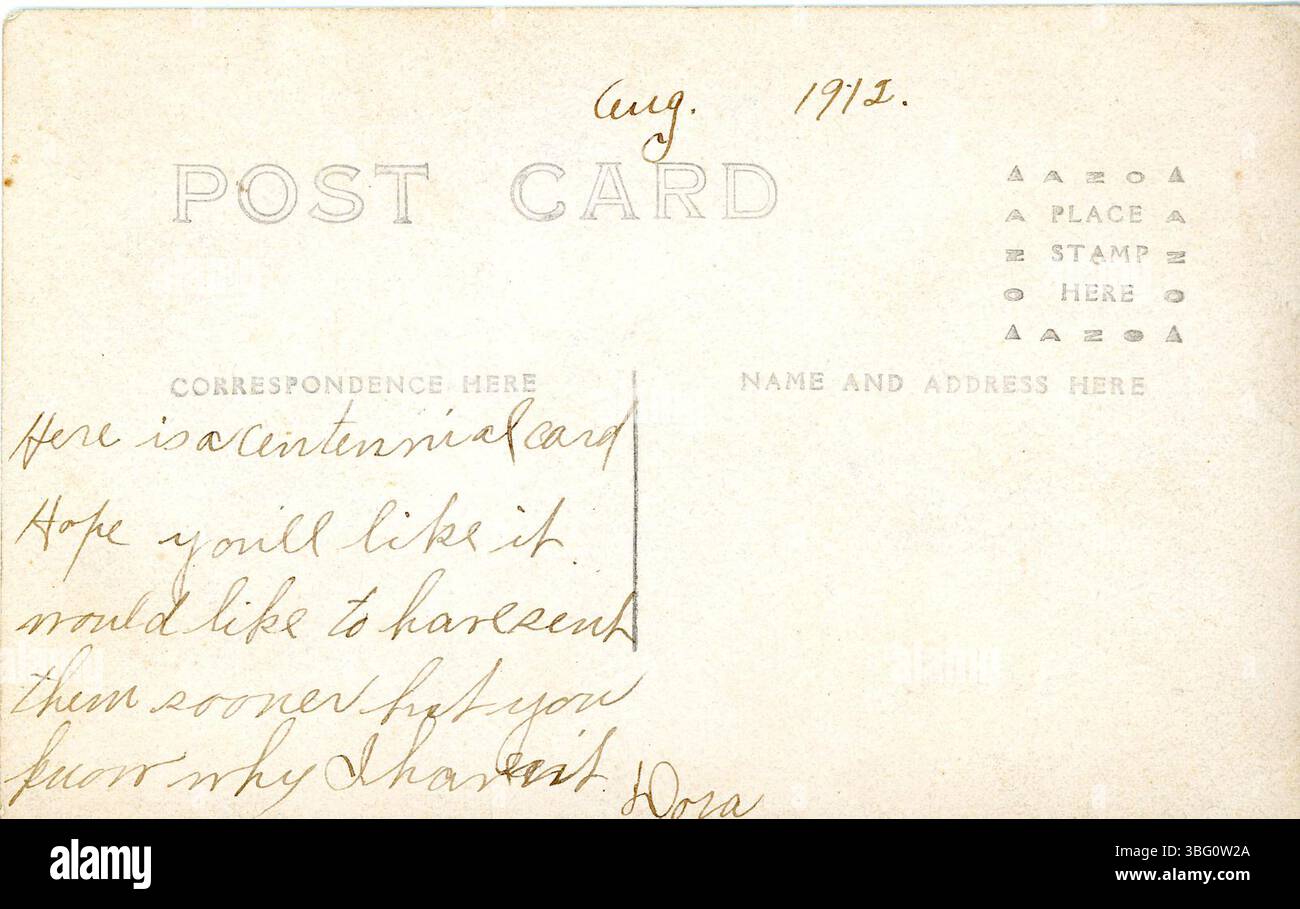 Aug. 1912.
POST CARD
AZO
PLACE
STAMP
HERE
AZO
AZO
AZO
CORRESPONDENCE HERE
NAME AND ADDRESS HERE
Here is a centennial card
Hope you'll like it
would like to have sent
them sooner but you
know why I haven't.
Dora
alamy
Image ID: 3BG0W2A
www.alamy.com